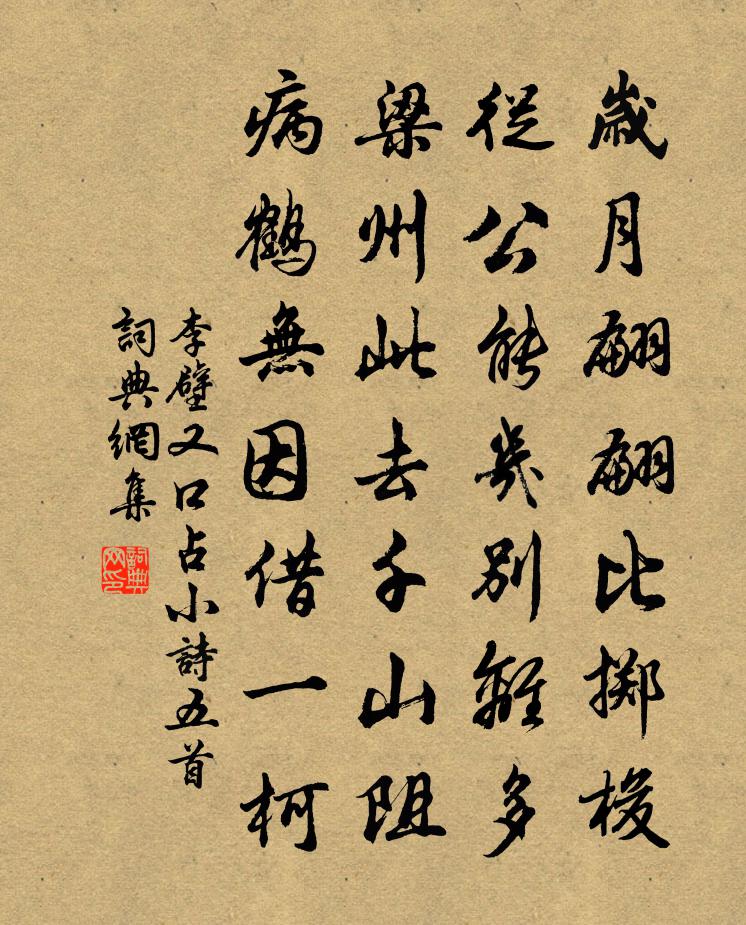 歲月翩翩比擲梭
從公能幾別離多
梁州此去千山阻
病鶴無因借一柯
李壁又口占小詩五首
詞典網集
詞典网印